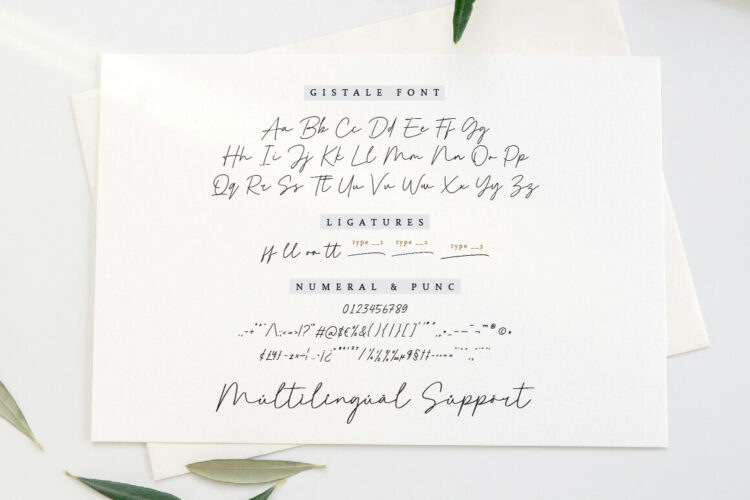 GISTALE FONT
Aa Bb Cc Dd Ee Ff Gg
Hh Ii Jj Kk Ll Mm Nn Oo Pp
Qq Rr Ss Tt Uu Vv Ww Xx Yy Zz
LIGATURES
ff ll oo tt type __1 type __2 type __3
NUMERAL & PUNC
0123456789
#@$€%&(){}[] ™®©
Multilingual Support